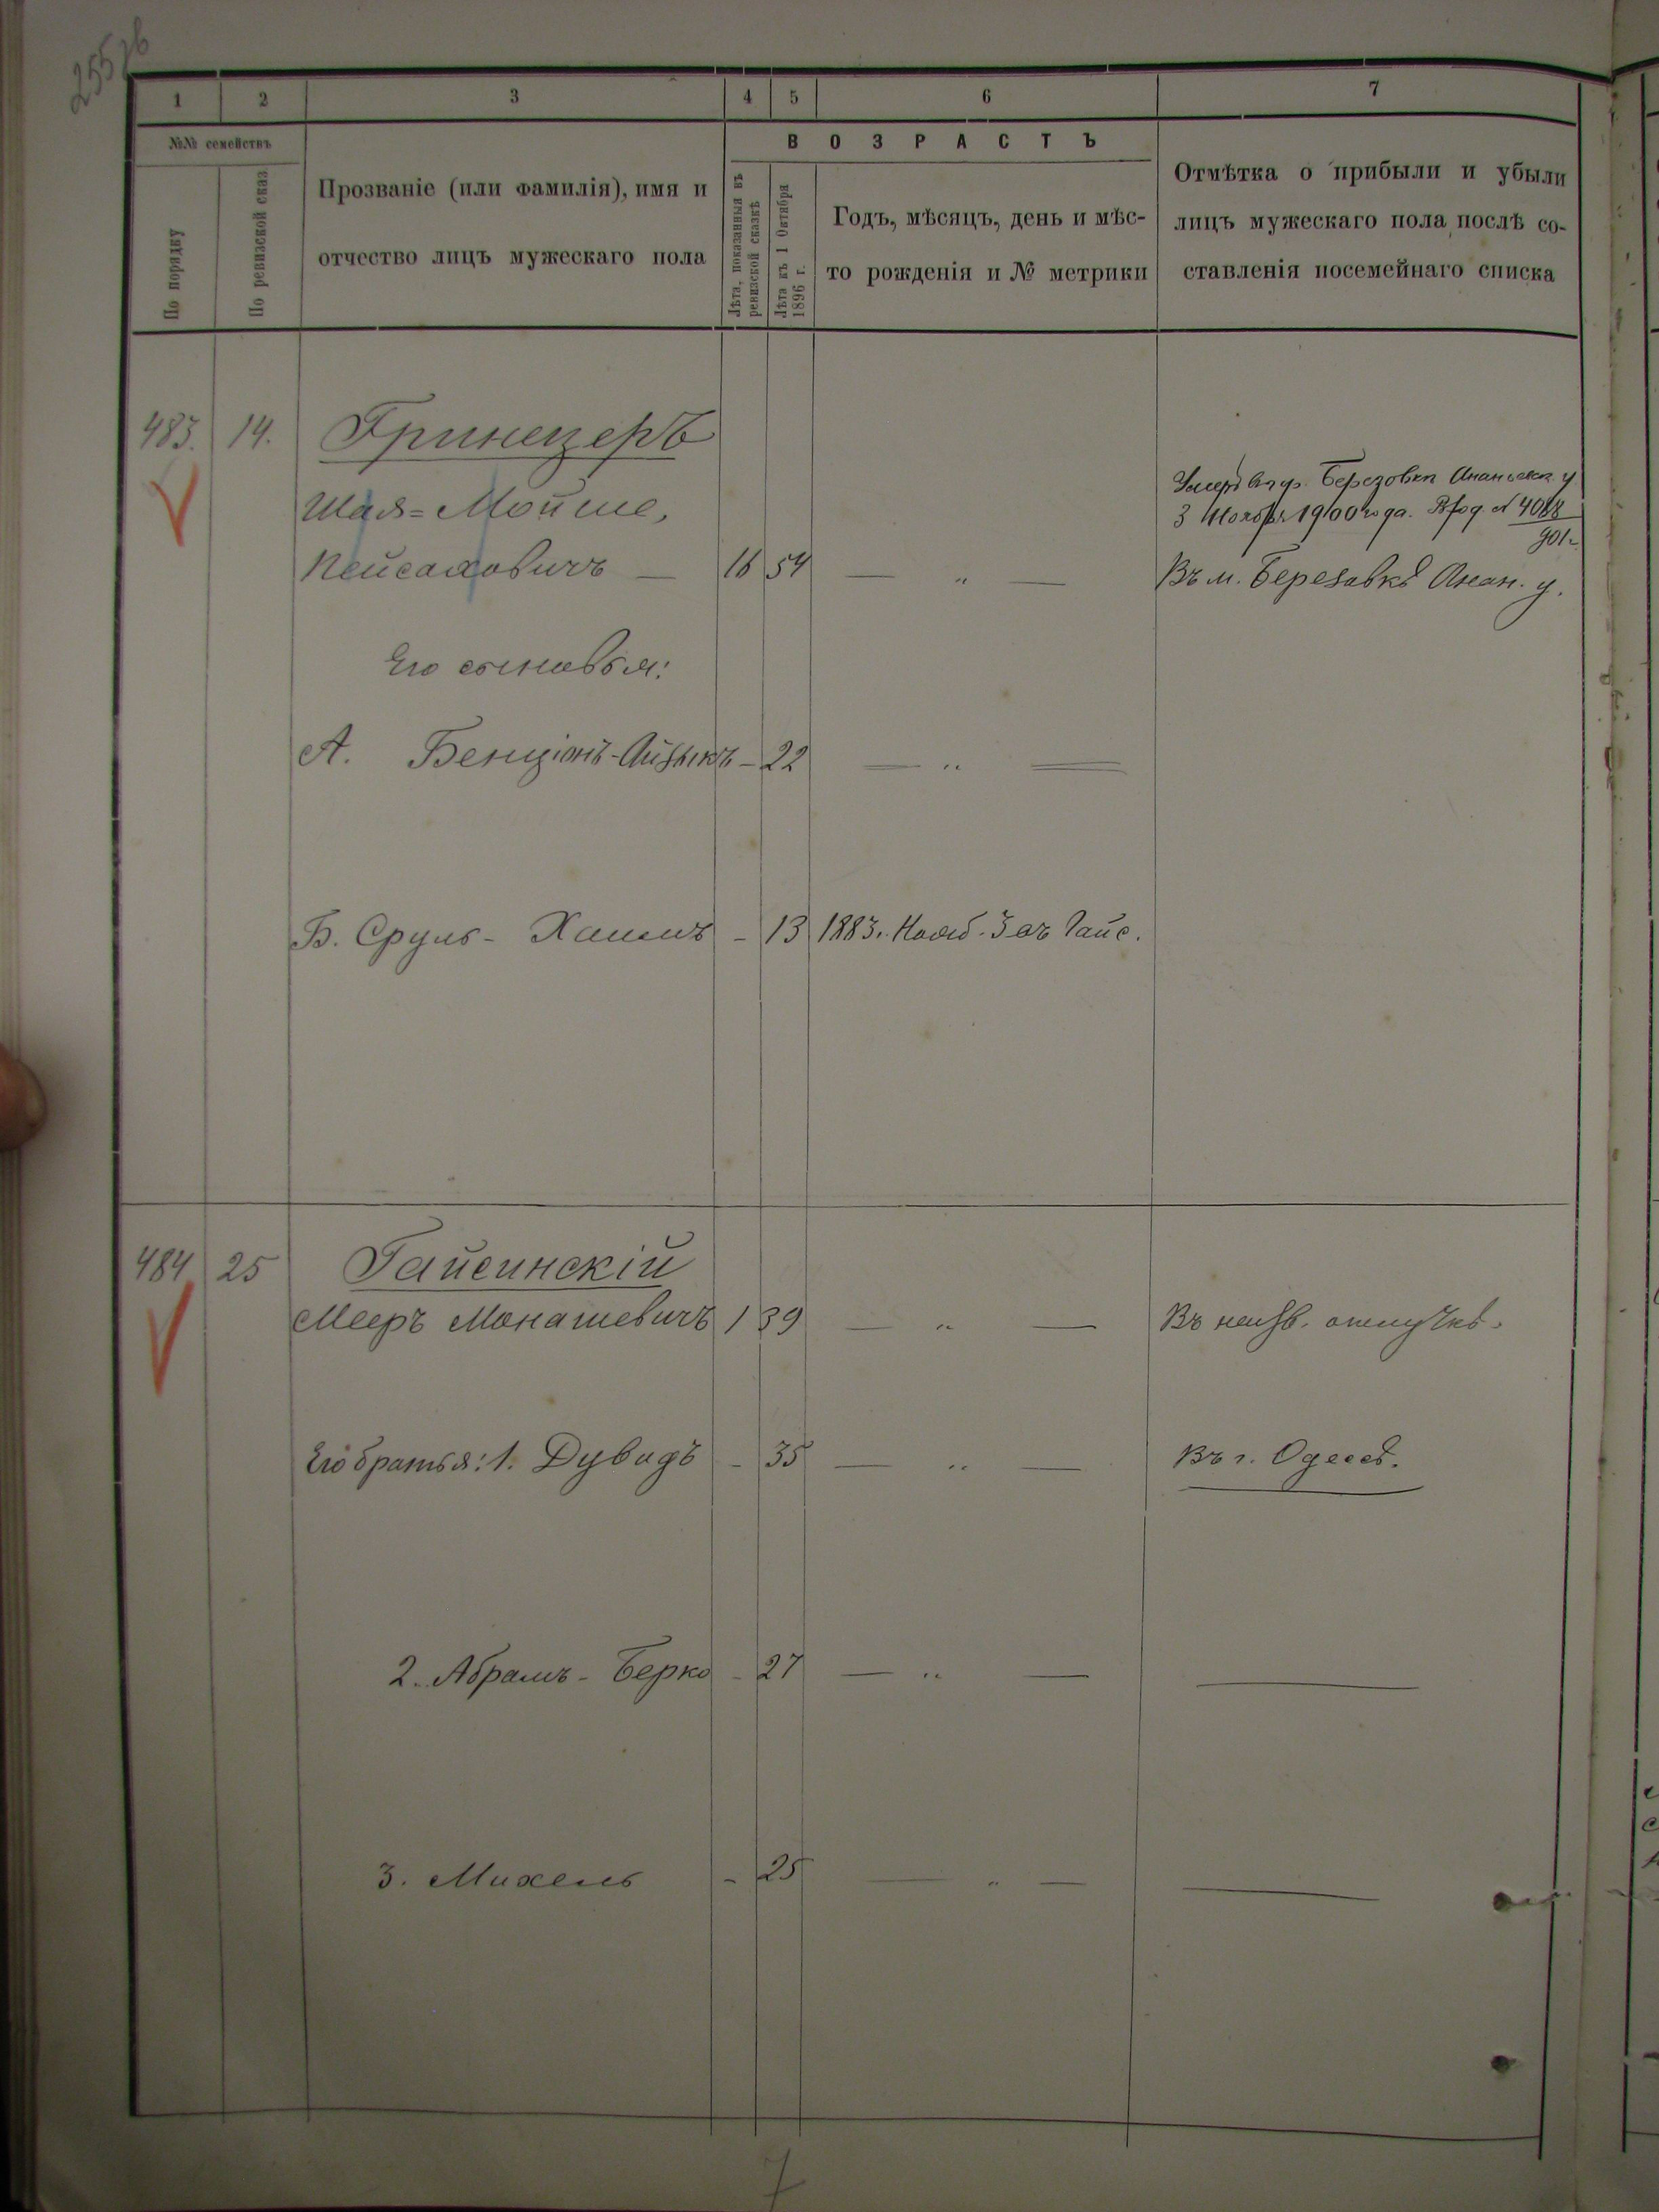 255 об
1 2 3 4 5 6 7
№№ семействъ
По порядку
По ревизской сказ
Прозваніе (или фамилія), имя и
отчество лицъ мужескаго пола
ВОЗРАСТЪ
Лѣта, показанныя въ
ревизской сказкѣ
Лѣта къ 1 Октября
1896 г.
Годъ, мѣсяцъ, день и мѣс-
то рожденія и № метрики
Отмѣтка о прибыли и убыли
лицъ мужескаго пола послѣ со-
ставленія посемейнаго списка
483. 14. Гринцеръ
Шая=Мойше,
Пейсаховичъ — 16 54 — „ —
Умеръ въ Березовкѣ Ананьевск. у
3 Ноября 1900 года. № 4088
901 г.
Въ м. Березовкѣ Анан. у.
Его сыновья:
А. Бенціонъ-Айзикъ - 22 — „ —
Б. Сруль - Хаимъ - 13 1883. Нояб. 3 въ Гайс.
484 25 Гайсинскій
Мееръ Монашевичъ 1 39 — „ — Въ неизв. отлучкѣ.
Его братья: 1. Дувидъ - 35 — „ — Въ г. Одессѣ.
2. Абрамъ - Берко - 27 — „ — —
3. Михель - 25 — „ — —
7